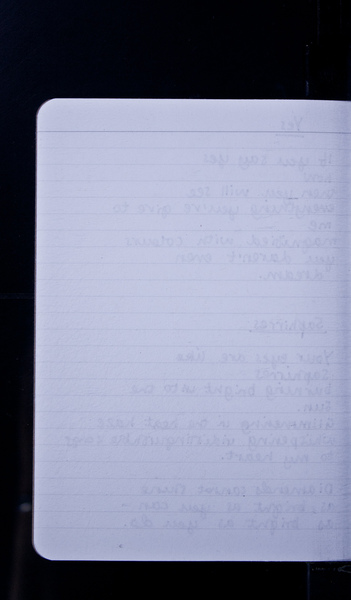 Yes
If you say yes
now
then you will see
everything you're give to
me
magnified with colours
you daren't even
dream.
Sapphires
Your eyes are like
sapphires
burning bright into the
sun.
Glimmering in the heat haze
whispering
to my heart.
Diamonds cannot shine
as bright as you can -
as bright as you do.